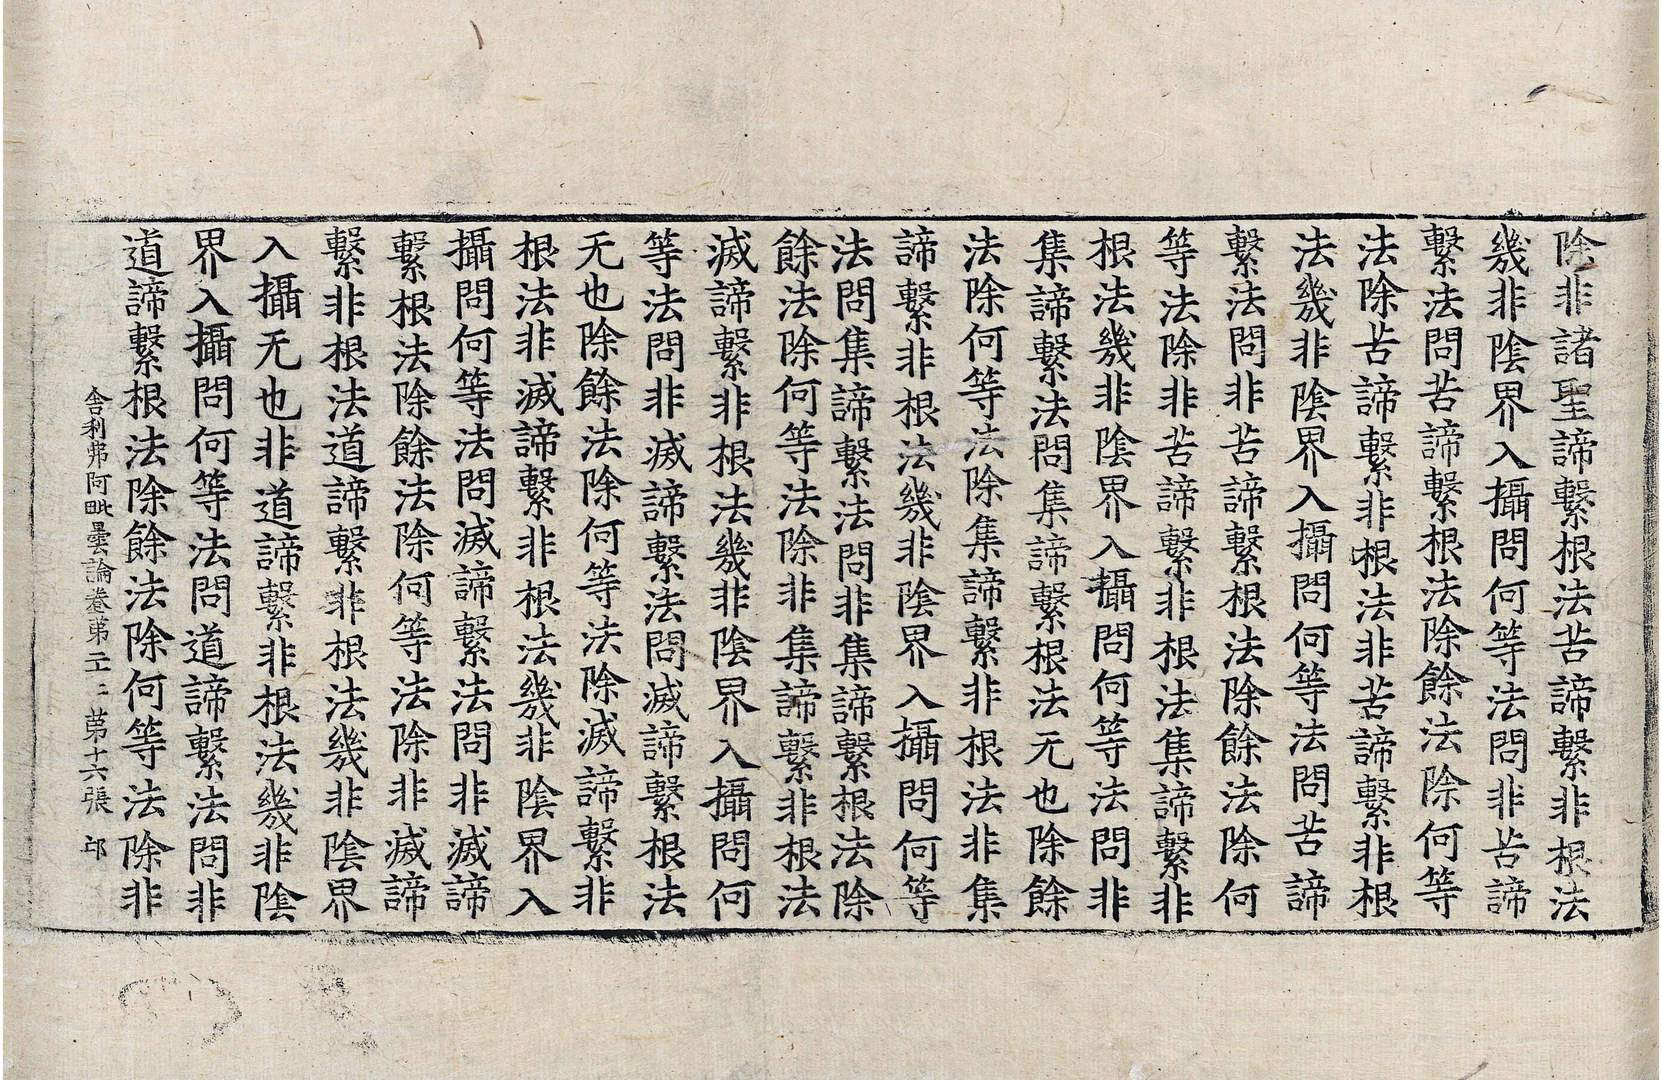 除非諸聖諦繫根法苦諦繫非根法
幾非陰界入攝問何等法問非苦諦
繫法問苦諦繫根法除餘法除何等
法除苦諦繫非根法非苦諦繫非根
法幾非陰界入攝問何等法問苦諦
繫法問非苦諦繫根法除餘法除何
等法除非苦諦繫非根法集諦繫非
根法幾非陰界入攝問何等法問非
集諦繫法問集諦繫根法无也除餘
法除何等法除集諦繫非根法非集
諦繫非根法幾非陰界入攝問何等
法問集諦繫法問非集諦繫根法除
餘法除何等法除非集諦繫非根法
滅諦繫非根法幾非陰界入攝問何
等法問非滅諦繫法問滅諦繫根法
无也除餘法除何等法除滅諦繫非
根法非滅諦繫非根法幾非陰界入
攝問何等法問滅諦繫法問非滅諦
繫根法除餘法除何等法除非滅諦
繫非根法道諦繫非根法幾非陰界
入攝无也非道諦繫非根法幾非陰
界入攝問何等法問道諦繫法問非
道諦繫根法除餘法除何等法除非
舍利弗阿毗曇論卷苐 苐十六張 邱